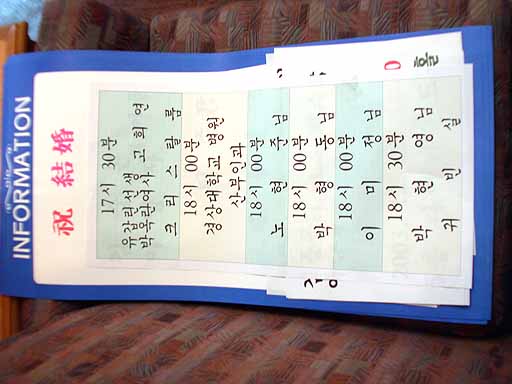 INFORMATION
祝 結婚
17시 30분
유갑린선생
박옥란여사 고 희 연
크 리 스 탈 룸
18시 00분
경상대학교 병원
산부인과
18시 00분
노 현 준 님
18시 00분
박 형 동 님
18시 00분
이 미 정 님
18시 30분
박 현 영 님
귀 빈 실
0
홀